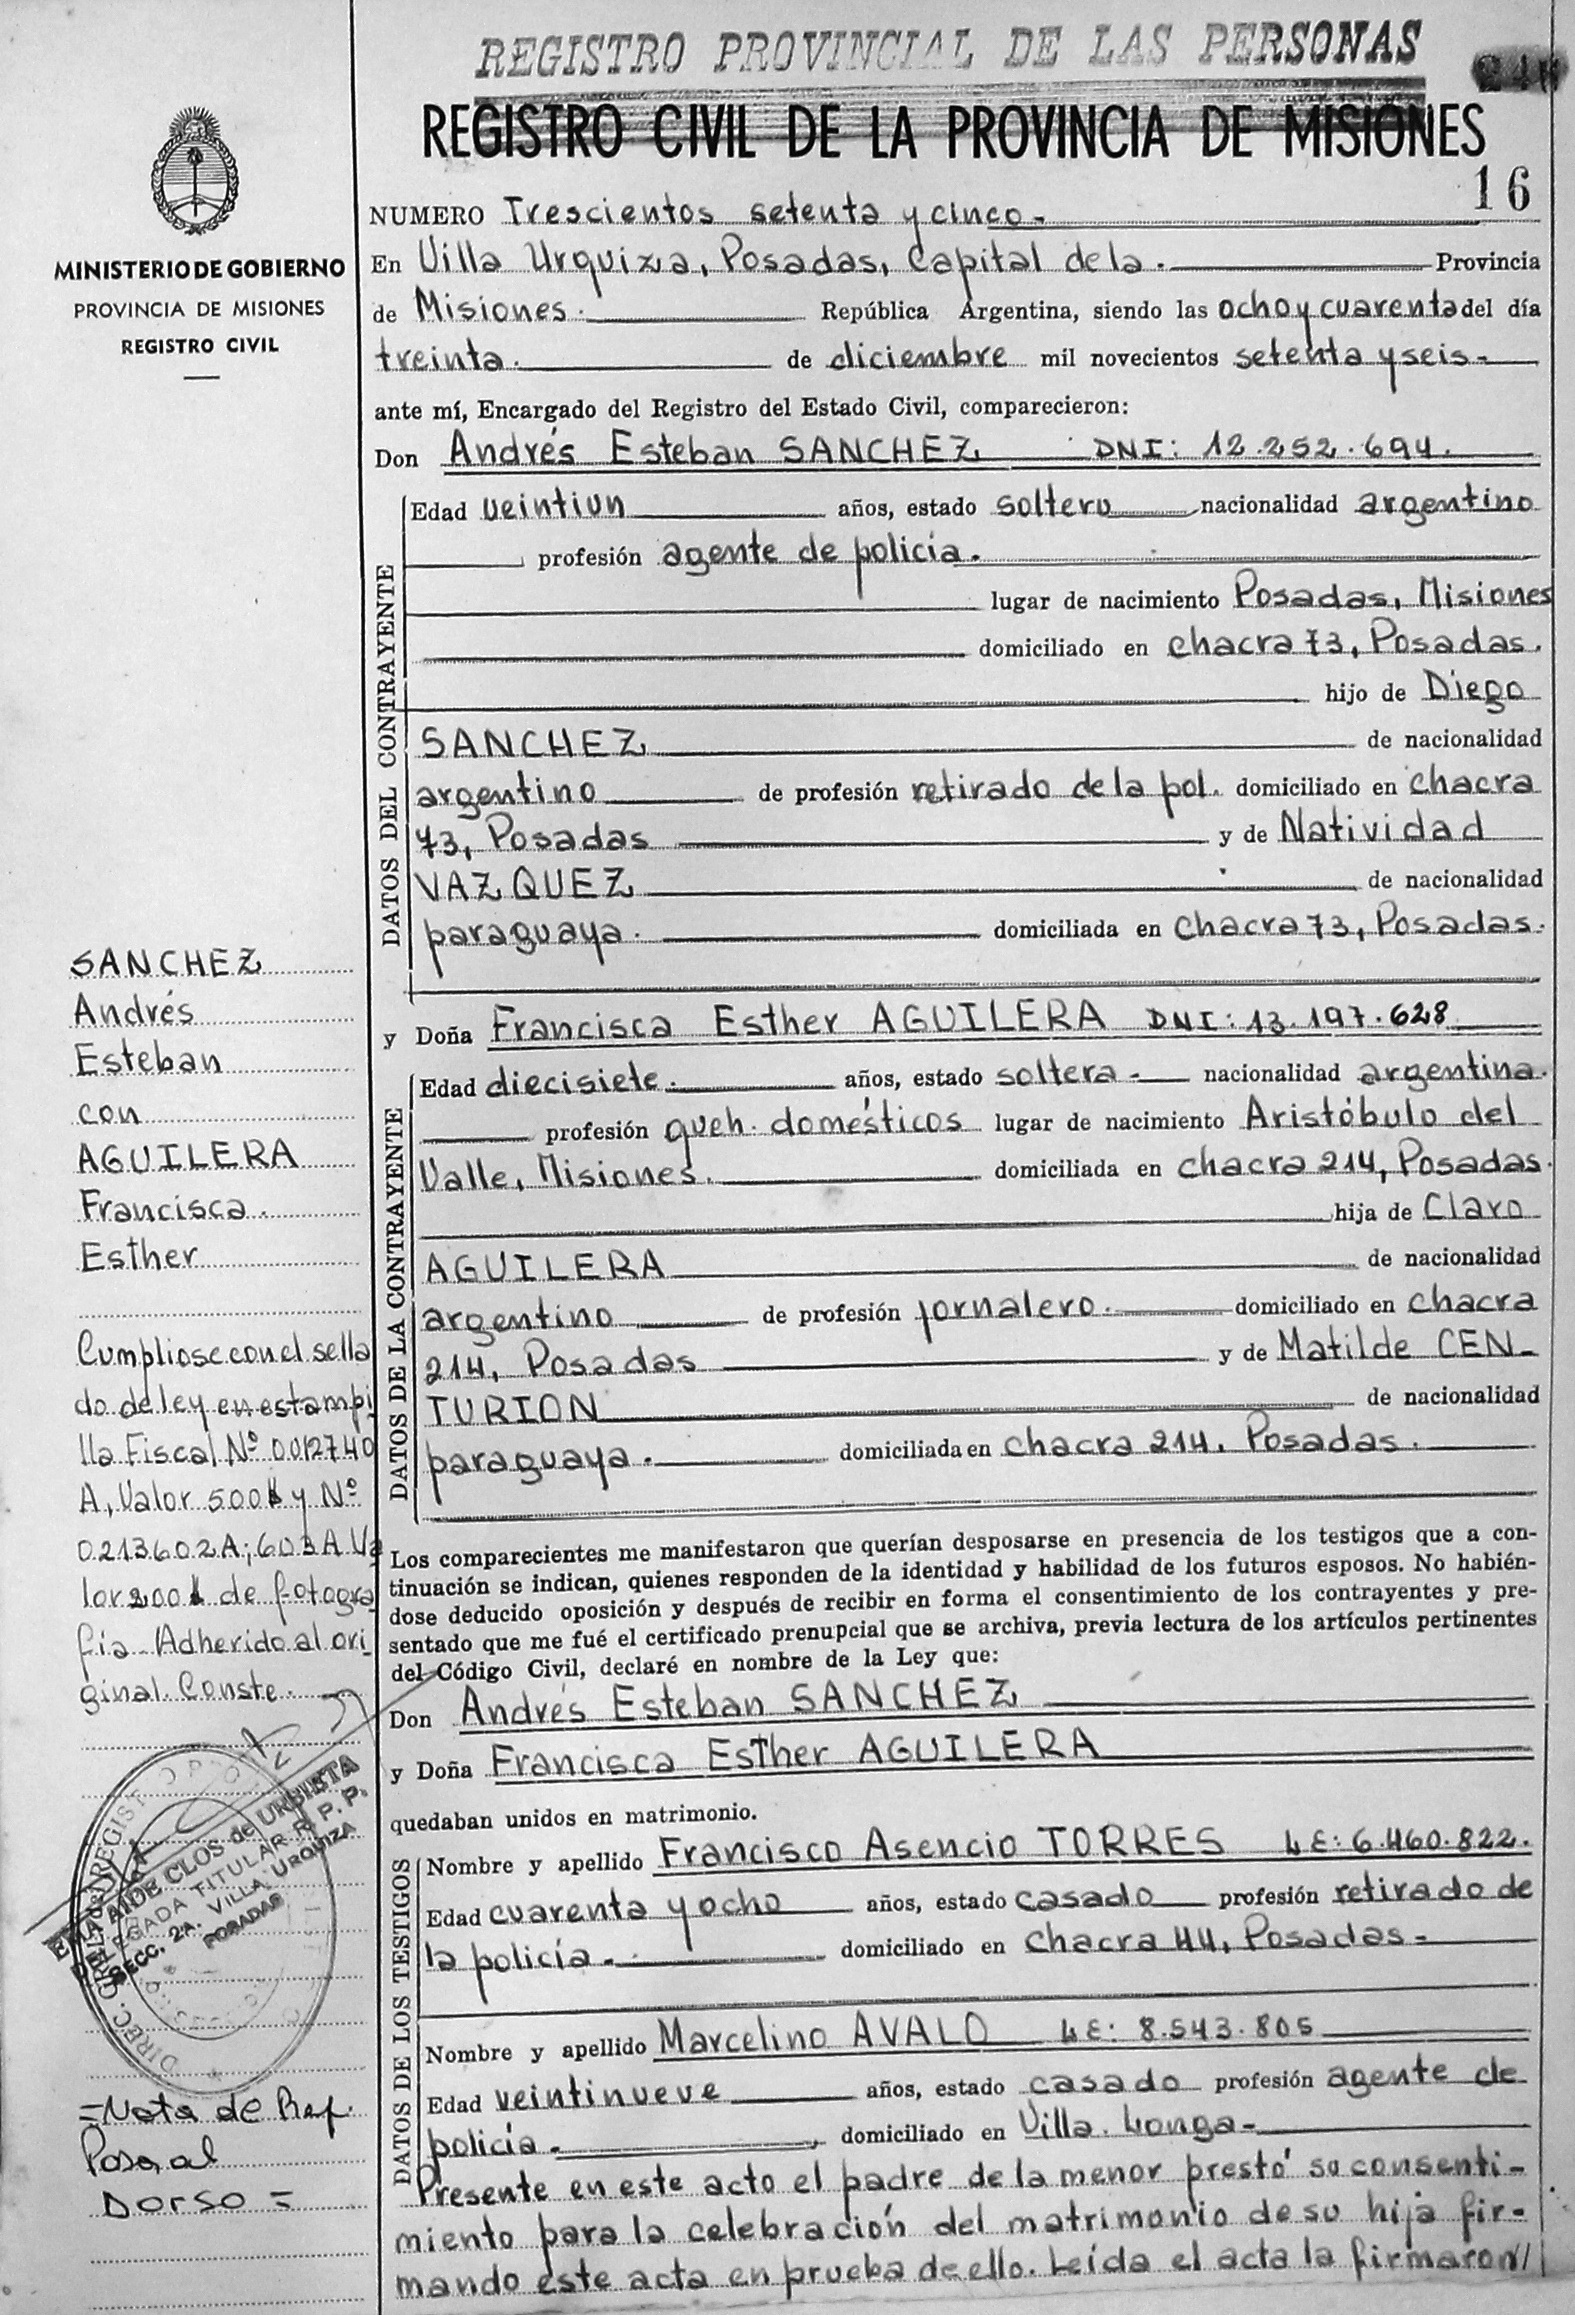 REGISTRO PROVINCIAL DE LAS PERSONAS
REGISTRO CIVIL DE LA PROVINCIA DE MISIONES
16
MINISTERIO DE GOBIERNO
PROVINCIA DE MISIONES
REGISTRO CIVIL
NUMERO Trescientos setenta y cinco-
En Villa Urquiza, Posadas, Capital de la. Provincia
de Misiones. República Argentina, siendo las ocho y cuarenta del día
treinta. de diciembre mil novecientos setenta y seis-
ante mí, Encargado del Registro del Estado Civil, comparecieron:
Don Andrés Esteban SANCHEZ DNI: 12.252.694.
DATOS DEL CONTRAYENTE
Edad veintiun años, estado soltero nacionalidad argentino
profesión agente de policía.
lugar de nacimiento Posadas, Misiones
domiciliado en chacra 73, Posadas.
hijo de Diego
SANCHEZ de nacionalidad
argentino de profesión retirado de la pol. domiciliado en chacra
73, Posadas y de Natividad
VAZQUEZ de nacionalidad
paraguaya. domiciliada en chacra 73, Posadas.
y Doña Francisca Esther AGUILERA DNI: 13.197.628
DATOS DE LA CONTRAYENTE
Edad diecisiete. años, estado soltera- nacionalidad argentina.
profesión queh. domésticos lugar de nacimiento Aristóbulo del
Valle, Misiones. domiciliada en chacra 214, Posadas.
hija de Claro
AGUILERA de nacionalidad
argentino de profesión jornalero. domiciliado en chacra
214, Posadas y de Matilde CEN-
TURION de nacionalidad
paraguaya. domiciliada en chacra 214. Posadas.
Los comparecientes me manifestaron que querían desposarse en presencia de los testigos que a con-
tinuación se indican, quienes responden de la identidad y habilidad de los futuros esposos. No habién-
dose deducido oposición y después de recibir en forma el consentimiento de los contrayentes y pre-
sentado que me fué el certificado prenupcial que se archiva, previa lectura de los artículos pertinentes
del Código Civil, declaré en nombre de la Ley que:
Don Andrés Esteban SANCHEZ
y Doña Francisca Esther AGUILERA
quedaban unidos en matrimonio.
DATOS DE LOS TESTIGOS
Nombre y apellido Francisco Asencio TORRES LE: 6.460.822.
Edad cuarenta y ocho años, estado casado profesión retirado de
la policía. domiciliado en chacra 44, Posadas-
DATOS DE LOS TESTIGOS
Nombre y apellido Marcelino AVALO LE: 8.543.805
Edad veintinueve años, estado casado profesión agente de
policía. domiciliado en Villa. Longa-
Presente en este acto el padre de la menor prestó su consenti-
miento para la celebración del matrimonio de su hija fir-
mando este acta en prueba de ello. Leída el acta la firmaron//
SANCHEZ
Andrés
Esteban
con
AGUILERA
Francisca.
Esther
Cumpliose con el sella
do de ley en estampi
lla Fiscal Nº 0012740
A, Valor 500$ y Nº
0213602A; 603A Va
lor 200$ de fotogra
fía Adherido al ori
ginal. Conste.
AIDE CLOS de URBIETA
DELEGADA TITULAR R. P. P.
SECC. 2ª. VILLA URQUIZA
POSADAS
=Nota de Ref.
Posa al
Dorso=